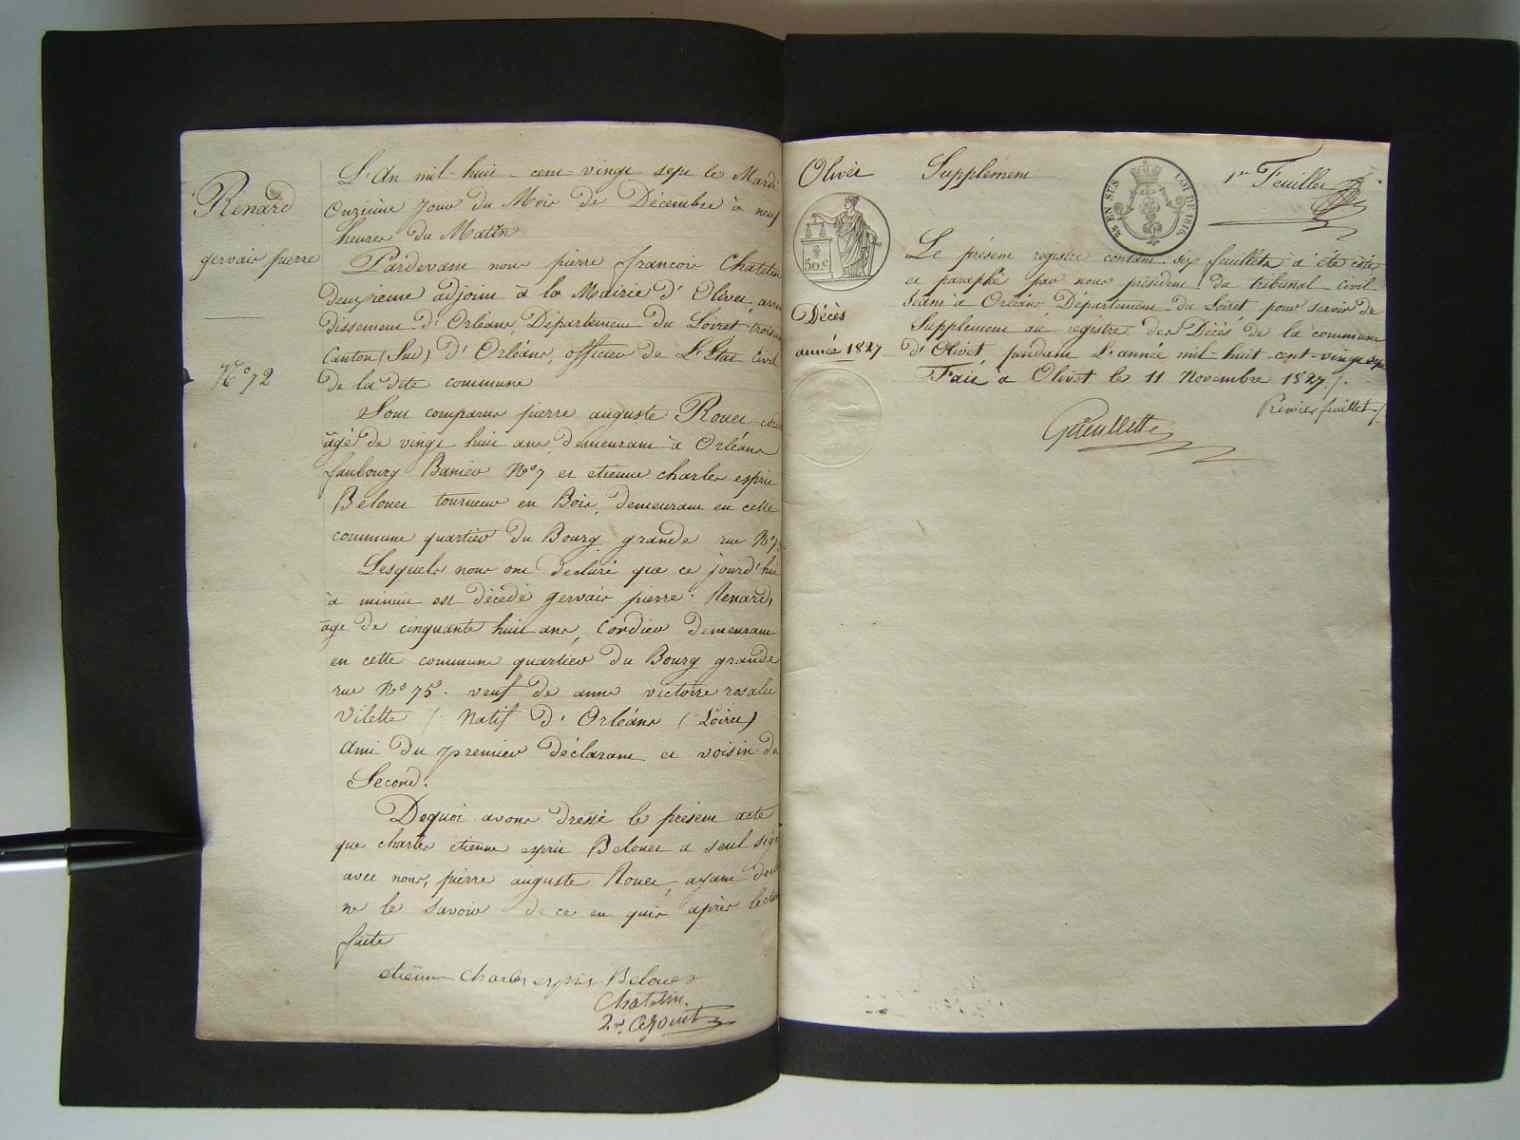 Renard
gervais pierre
N° 72
L'An mil huit cent vingt sept le Mardi
Onzieme jour du Mois de Décembre à neuf
heures du Matin
Pardevant nous pierre françois Chatelin
deuxieme adjoint à la Mairie d'Olivet, arron
dissement d'Orléans, Département du Loiret troisieme
Canton (Sud) d'Orléans, officier de L'Etat Civil
de la dite commune
Sont comparus pierre auguste Rouet
âgé de vingt huit ans, demeurant à Orléans
faubourg Banier N° 7 et etienne charles esprit
Belouet tourneur en Bois, demeurant en cette
commune quartier du Bourg grande rue N°
Lesquels nous ont declaré que ce jourd'hui
à minuit est décédé gervais pierre Renard,
age de cinquante huit ans, Cordier demeurant
en cette commune quartier du Bourg grande
rue N° 75. veuf de anne victoire rosalie
Vilette / Natif d'Orléans (Loiret)
Ami du premier déclarant et voisin du
Second.
Dequoi avons dressé le présent acte
que charles étienne esprit Belouet a seul signé
avec nous, pierre auguste Rouet, ayant declaré
ne le savoir de ce en quis après lecture
faite
etienne Charles esprit Belouet
Chatelin.
2e. Adjoint
Olivet
Supplément
1er Feuillet
50 c
EN SUS
LOI DE 1816
Décès
année 1827
Le présent registre contenant six feuillets a été coté
et paraphé par nous président du tribunal civil
séant à Orléans, Département du Loiret pour servir de
Supplément au registre des Décès de la commune
d'Olivet, pendant L'année mil huit cent vingt sept
Fait à Olivet le 11 Novembre 1827 /.
Premier feuillet /